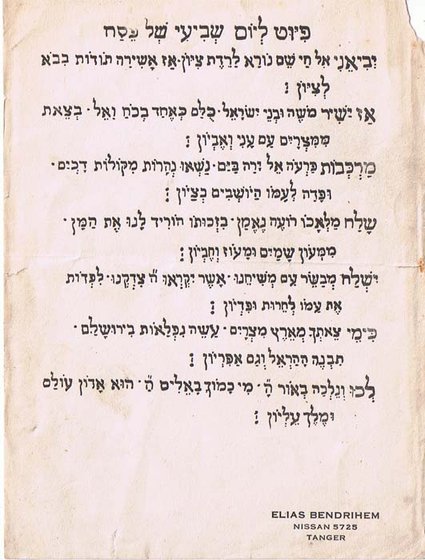 פיוט ליום שביעי של פסח
יביאני אל חי שם נורא לרדת ציון· אז אשירה תודות בבא
לציון :
אז ישיר משה ובני ישראל· כלם כאחד בכח ואל· בצאת
ממצרים עם עני ואביון :
מרכבות פרעה אל ירה בים· נשאו נהרות מקולות דכים·
ופדה לעמו היושבים בציון :
שלח מלאכו רועה נאמן· בזכותו הוריד לנו את המן·
ממעון שמים ומעוז וחביון :
ישלח מבשר עם משיחנו· אשר יקראו ה' צדקנו· לפדות
את עמו לחרות ופדיון :
כימי צאתך מארץ מצרים· עשה נפלאות בירושלם·
תבנה ההראל וגם אפריון :
לכו ונלכה באור ה'· מי כמוך באלים ה'· הוא אדון עולם
ומלך עליון :
ELIAS BENDRIHEM
NISSAN 5725
TANGER